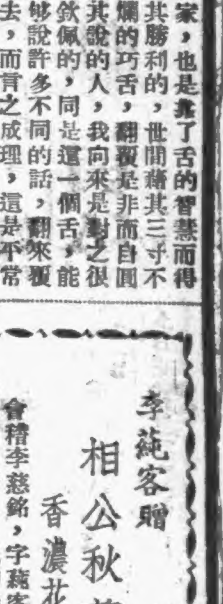 家，也是靠了舌的智慧而得
其勝利的，世間藉其三寸不
爛的巧舌，翻覆是非而自圓
其說的人，我向來是對之很
欽佩的，同是這一個舌，能
够說許多不同的話，翻來覆
去，而言之成理，這是不常
李蒓客贈
相公秋
香濃花
會稽李慈銘，字蒓客